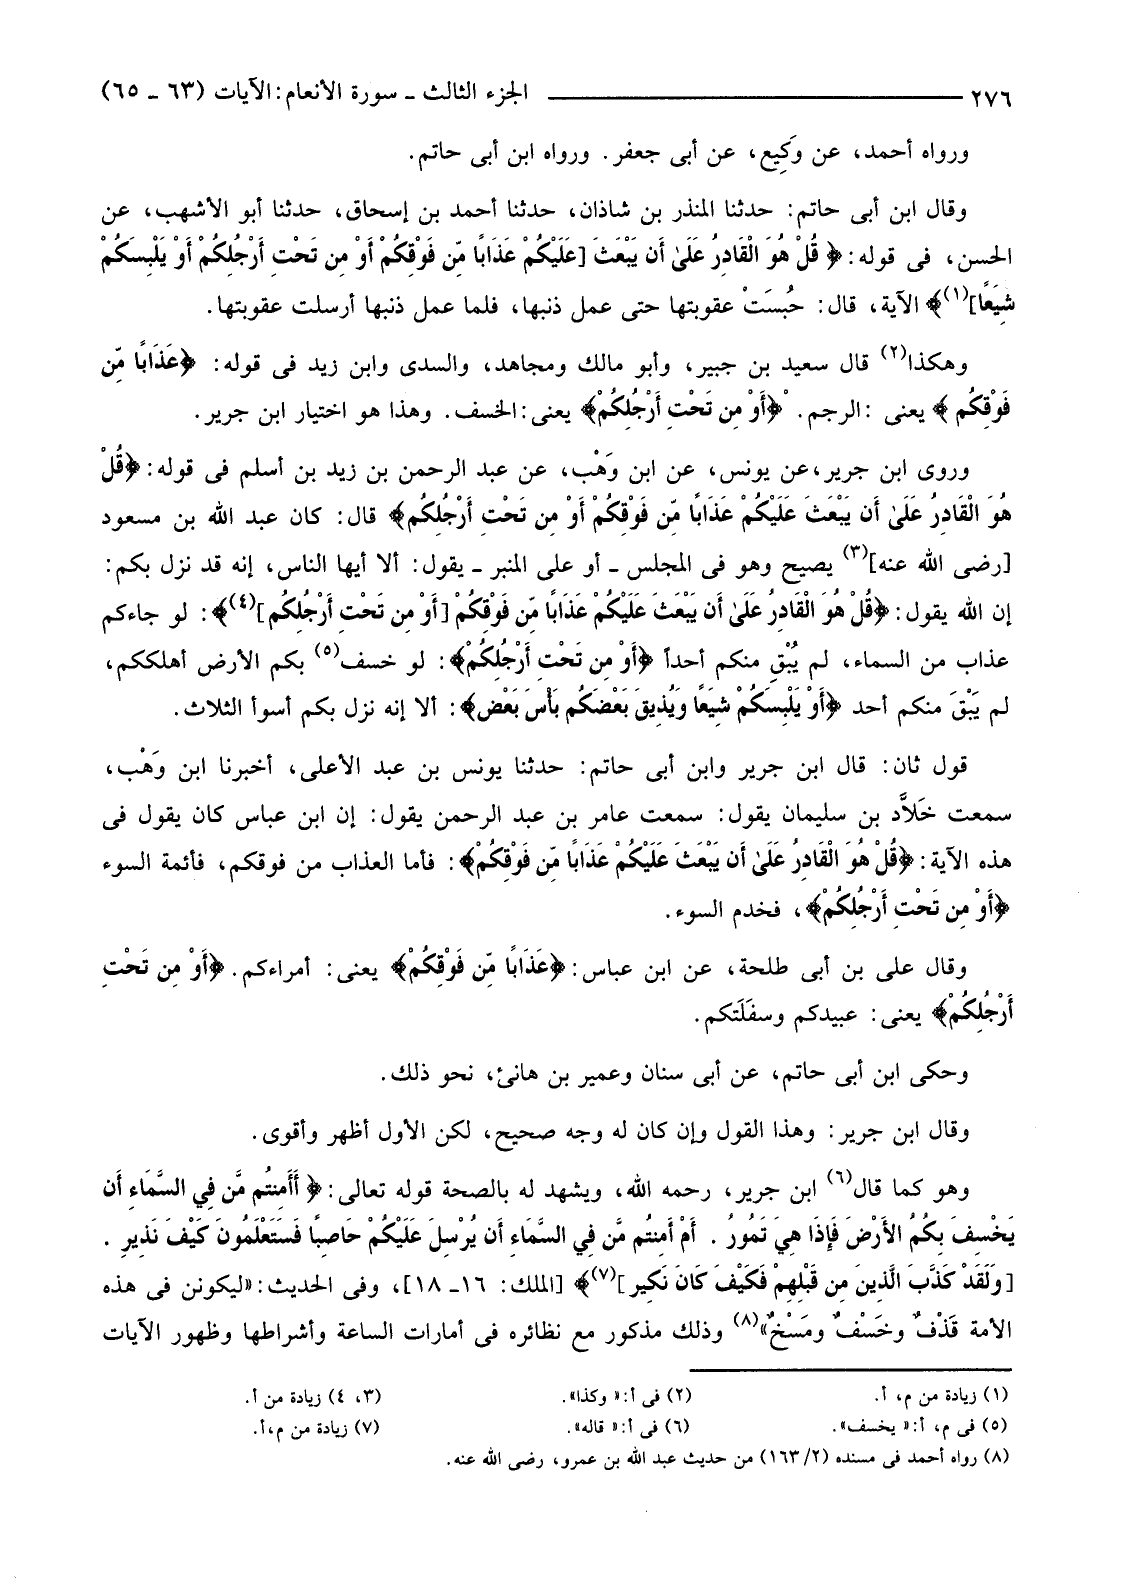 ٢٧٦ ــــــــــــــــ الجزء الثالث ـ سورة الأنعام: الآيات (٦٣ ـ ٦٥)
ورواه أحمد، عن وَكِيع، عن أبى جعفر. ورواه ابن أبى حاتم.
وقال ابن أبى حاتم: حدثنا المنذر بن شاذان، حدثنا أحمد بن إسحاق، حدثنا أبو الأشهب، عن
الحسن، فى قوله: ﴿ قُلْ هُوَ الْقَادِرُ عَلَىٰ أَن يَبْعَثَ [عَلَيْكُمْ عَذَابًا مِّن فَوْقِكُمْ أَوْ مِن تَحْتِ أَرْجُلِكُمْ أَوْ يَلْبِسَكُمْ
شِيَعًا](١)﴾ الآية، قال: حُبسَتْ عقوبتها حتى عمل ذنبها، فلما عمل ذنبها أرسلت عقوبتها.
وهكذا(٢) قال سعيد بن جبير، وأبو مالك ومجاهد، والسدى وابن زيد فى قوله: ﴿عَذَابًا مِّن
فَوْقِكُم ﴾ يعنى :الرجم. ﴿أَوْ مِن تَحْتِ أَرْجُلِكُمْ﴾ يعنى: الخسف. وهذا هو اختيار ابن جرير.
وروى ابن جرير، عن يونس، عن ابن وَهْب، عن عبد الرحمن بن زيد بن أسلم فى قوله: ﴿قُلْ
هُوَ الْقَادِرُ عَلَىٰ أَن يَبْعَثَ عَلَيْكُمْ عَذَابًا مِّن فَوْقِكُمْ أَوْ مِن تَحْتِ أَرْجُلِكُم﴾ قال: كان عبد الله بن مسعود
[رضى الله عنه](٣) يصيح وهو فى المجلس ـ أو على المنبر ـ يقول: ألا أيها الناس، إنه قد نزل بكم:
إن الله يقول: ﴿قُلْ هُوَ الْقَادِرُ عَلَىٰ أَن يَبْعَثَ عَلَيْكُمْ عَذَابًا مِّن فَوْقِكُمْ [أَوْ مِن تَحْتِ أَرْجُلِكُم](٤)﴾: لو جاءكم
عذاب من السماء، لم يُبْقِ منكم أحداً ﴿أَوْ مِن تَحْتِ أَرْجُلِكُمْ﴾: لو خسف(٥) بكم الأرض أهلككم،
لم يَبْقَ منكم أحد ﴿أَوْ يَلْبِسَكُمْ شِيَعًا وَيُذِيقَ بَعْضَكُم بَأْسَ بَعْضٍ﴾: ألا إنه نزل بكم أسوأ الثلاث.
قول ثان: قال ابن جرير وابن أبى حاتم: حدثنا يونس بن عبد الأعلى، أخبرنا ابن وَهْب،
سمعت خَلاَّد بن سليمان يقول: سمعت عامر بن عبد الرحمن يقول: إن ابن عباس كان يقول فى
هذه الآية: ﴿قُلْ هُوَ الْقَادِرُ عَلَىٰ أَن يَبْعَثَ عَلَيْكُمْ عَذَابًا مِّن فَوْقِكُمْ﴾: فأما العذاب من فوقكم، فأئمة السوء
﴿أَوْ مِن تَحْتِ أَرْجُلِكُمْ﴾، فخدم السوء.
وقال على بن أبى طلحة، عن ابن عباس: ﴿عَذَابًا مِّن فَوْقِكُمْ﴾ يعنى: أمراءكم. ﴿أَوْ مِن تَحْتِ
أَرْجُلِكُمْ﴾ يعنى: عبيدكم وسفَلَتكم.
وحكى ابن أبى حاتم، عن أبى سنان وعمير بن هانئ، نحو ذلك.
وقال ابن جرير: وهذا القول وإن كان له وجه صحيح، لكن الأول أظهر وأقوى.
وهو كما قال(٦) ابن جرير، رحمه الله، ويشهد له بالصحة قوله تعالى: ﴿ أَأَمِنتُم مَّن فِي السَّمَاءِ أَن
يَخْسِفَ بِكُمُ الأَرْضَ فَإِذَا هِيَ تَمُورُ . أَمْ أَمِنتُم مَّن فِي السَّمَاءِ أَن يُرْسِلَ عَلَيْكُمْ حَاصِبًا فَسَتَعْلَمُونَ كَيْفَ نَذِيرِ .
[وَلَقَدْ كَذَّبَ الَّذِينَ مِن قَبْلِهِمْ فَكَيْفَ كَانَ نَكِيرِ](٧)﴾ [الملك: ١٦ـ ١٨]، وفى الحديث: «ليكونن فى هذه
الأمة قَذْفٌ وخَسْفٌ ومَسْخٌ»(٨) وذلك مذكور مع نظائره فى أمارات الساعة وأشراطها وظهور الآيات
(١) زيادة من م، أ. (٢) فى أ: « وكذا». (٣، ٤) زيادة من أ.
(٥) فى م، أ: « يخسف». (٦) فى أ: « قاله». (٧) زيادة من م،أ.
(٨) رواه أحمد فى مسنده (٢/ ١٦٣) من حديث عبد الله بن عمرو، رضى الله عنه.